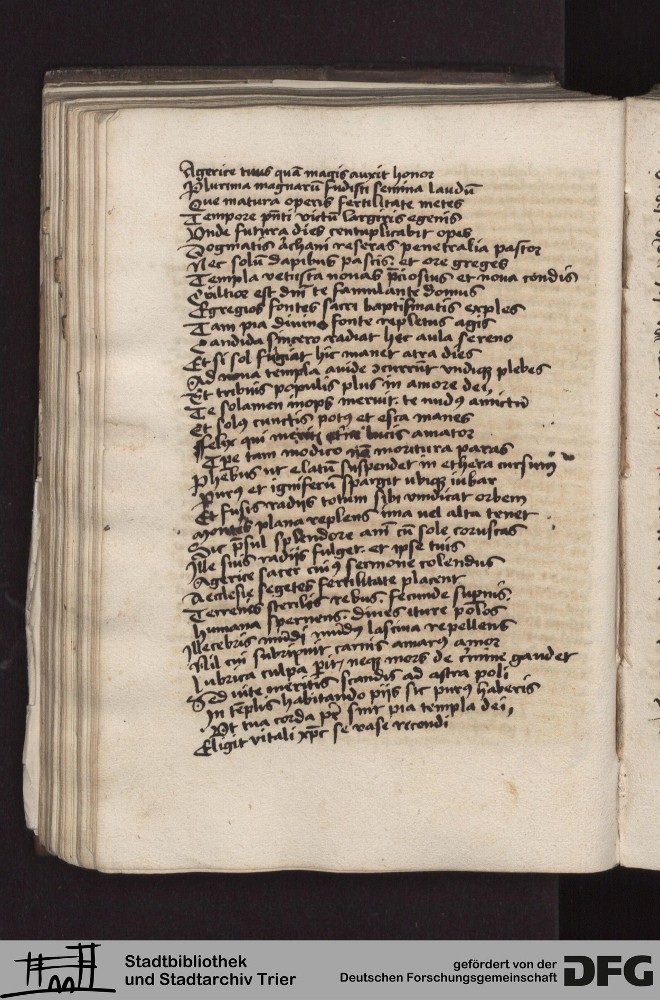 Agerice tuus quā magis auxit honor
Plurima magnarū fudisti semina laudū
Que matura operis fertilitate metes
Tempore pn̄ti victū largiris egenis
Unde futura dies centuplicabit opes
Dogmatis archani reseras penetralia pastor
Nec solū dapibus pascis: et ore greges
Templa vetusta novas p̄ciosius et nova condis
Cultior est dn̄i te famulante domus
Egregios fontes sacri baptismatis exples
Tam pia divino fonte repletus agis
Candida sincero radiat hec aula sereno
Et si sol fugiat hic manet atra dies
Ad nova templa avide ɔcurrūt undiqꝫ plebes
Et tribuis populis plus in amore dei,
Te solamen inops meruit. te nudꝰ amictū
Et solꝰ cunctis potꝰ et esca manes
Felix qui lucis amator
Tp̄e tam modico nō moritura paras
Phebus ut elatū suspendet in ethera cursum
Purꝰ et igniferū spargit ubiqꝫ iubar
Et fusis radiis totum sibi vindicat orbem
Montes plana replens ima vel alta tenet
Sic p̄sul splendore animi cū sole coruscas
Ille suis radiis fulget. et ipse tuis
Agerice sacer cuiꝰ sermone colendus
Aecclesie segetes fertilitate placent
Terrenis sterilis rebus. fecunde supnis.
Humana spernens. dives iture polos
Illecebris mūdi mūdꝰ lasciva repellens
Nil cui subripuit carnis amarꝰ amor
Lubrica culpa perit, neqꝫ mors de crīmine gaudet
Sed vite meritis scandis ad astra poli
In tēplis habitando piis sic purꝰ haberis
Ut tua corda pr̄ sint pia templa dei,
Eligit vitali xp̄c se vase recondi
Stadtbibliothek
und Stadtarchiv Trier
gefördert von der
Deutschen Forschungsgemeinschaft
DFG